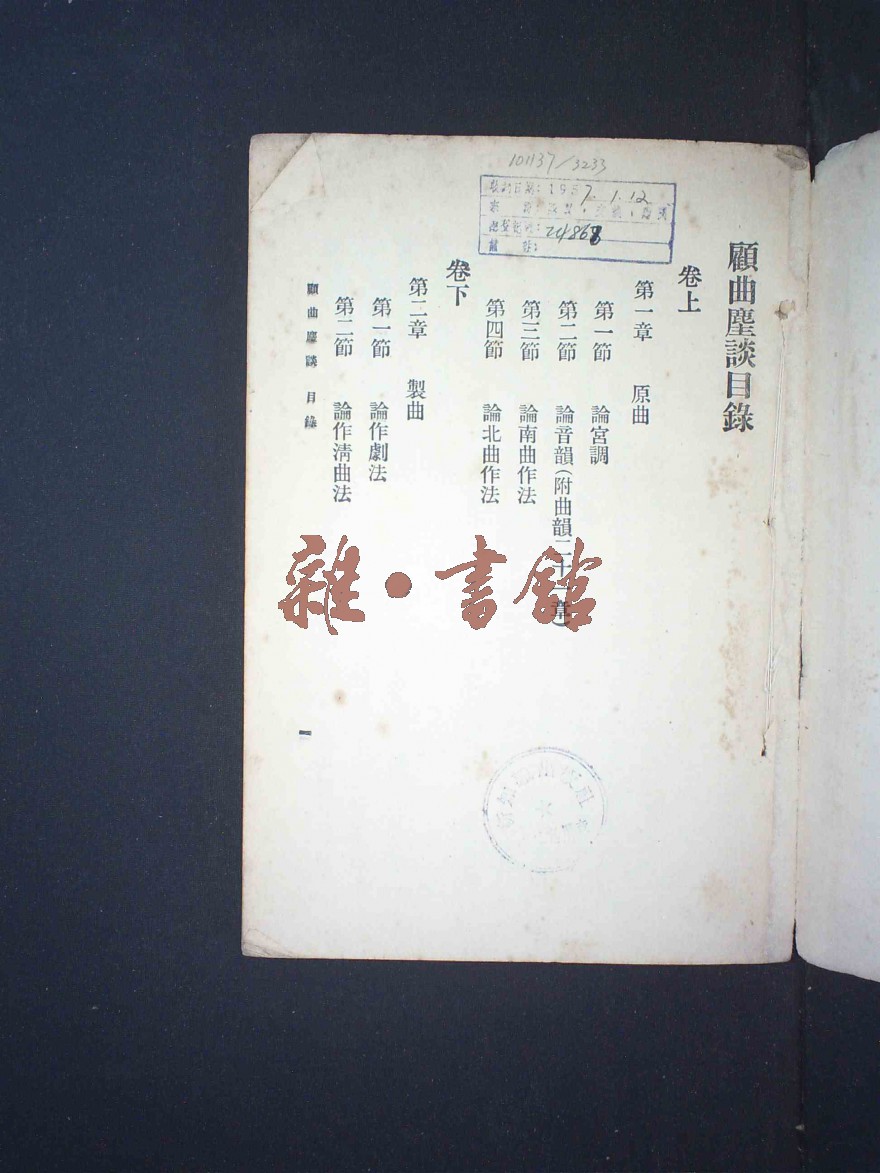 101137/3233
1957.1.12
24868
顧曲塵談目錄
卷上
第一章 原曲
第一節 論宮調
第二節 論音韻(附曲韻二十一章)
第三節 論南曲作法
第四節 論北曲作法
卷下
第二章 製曲
第一節 論作劇法
第二節 論作清曲法
顧曲塵談 目錄
一
雜·書館